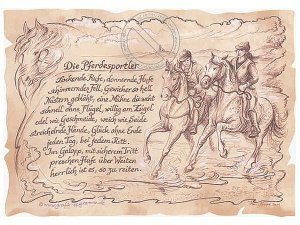 Die Pferdesportler
Lockende Rufe, donnernde Hufe
schimmerndes Fell, Gewieher so hell
Nüstern gebläht, eine Mähne die weht
schnell ohne Flügel, willig am Zügel
edel wie Geschmeide, weich wie Seide
streichelnde Hände, Glück ohne Ende
jeden Tag, bei jedem Ritt.
Im Galopp, mit sicherem Tritt
preschen Hufe über Weiten
herrlich ist es, so zu reiten.